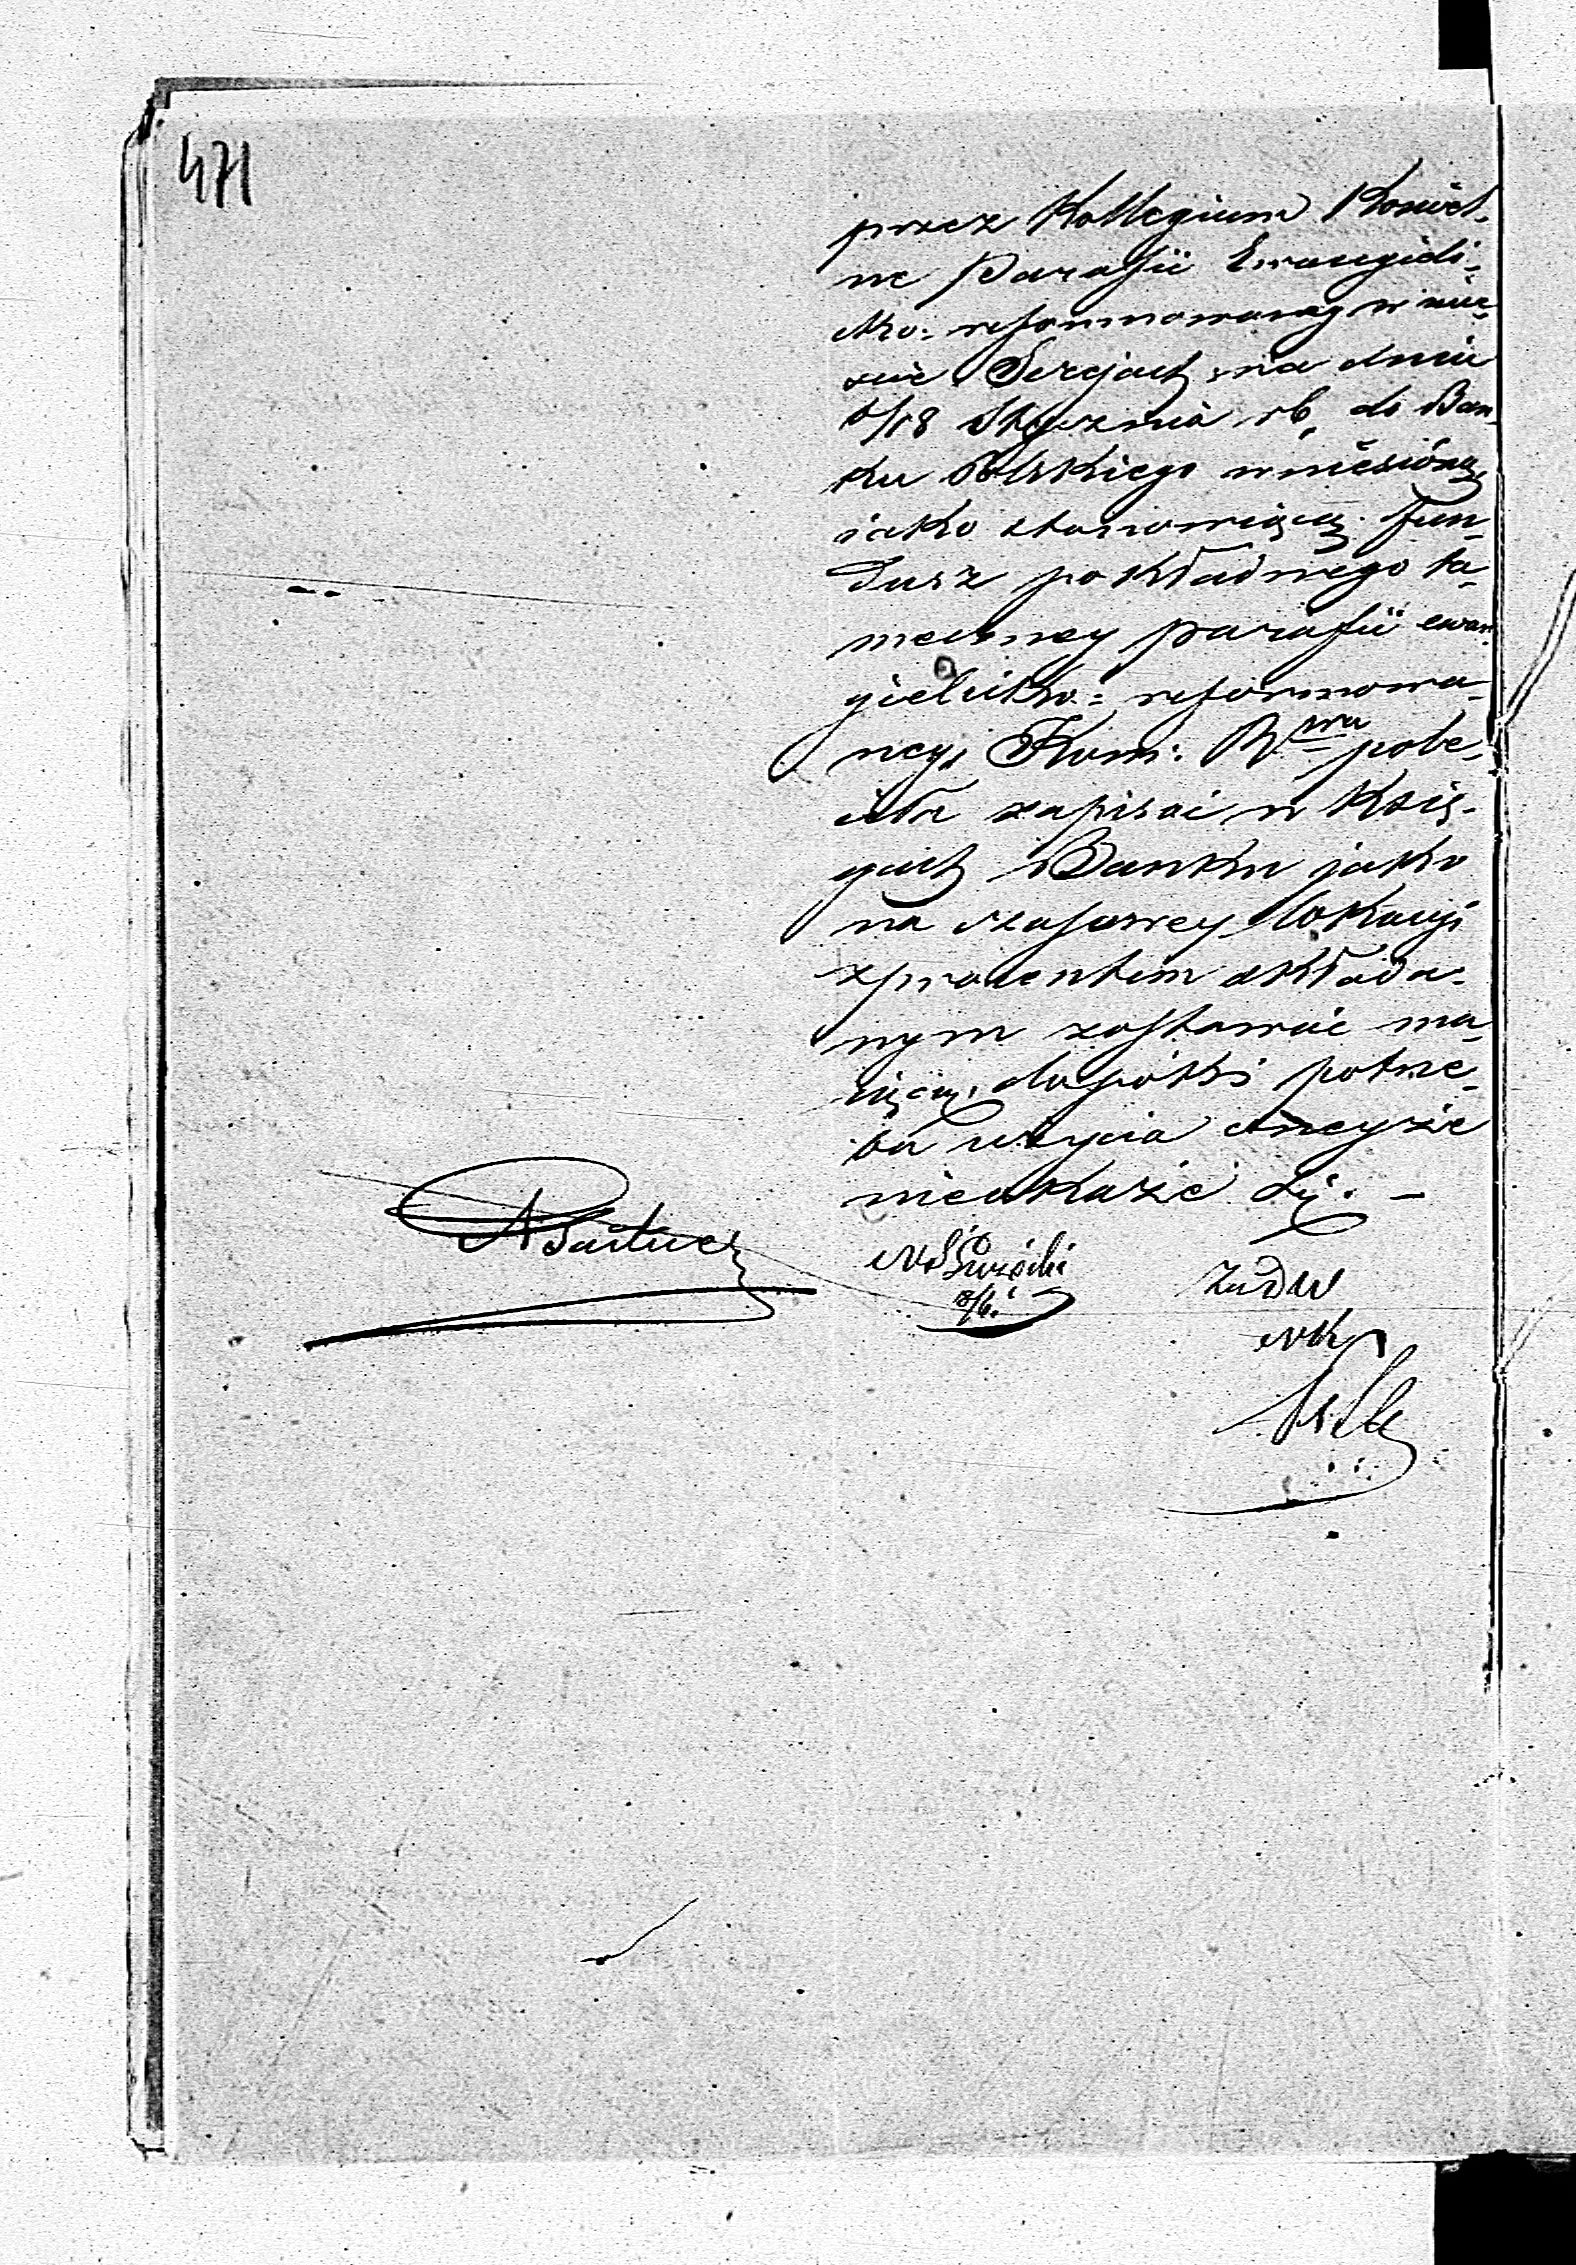 471
przez Kollegium Kościel-
ne Parafii Ewangieli-
cko-reformowaney w mie-
ście Serejach na dniu
6/18 Stycznia rb. do Ban-
ku Polskiego wniesioną,
jako stanowiącą fun-
dusz pokładnego ta-
meczney parafii ewan-
gielicko-reformowa-
ney, Kom: Rwa pole-
ciła zapisać w Księ-
gach Banku jako
na czasowey lokacyi
z procentem składa-
nym zostawać ma-
iącą, dopóki potrze-
ba użycia oneyże
nieokaże się. -
Za DW
NK